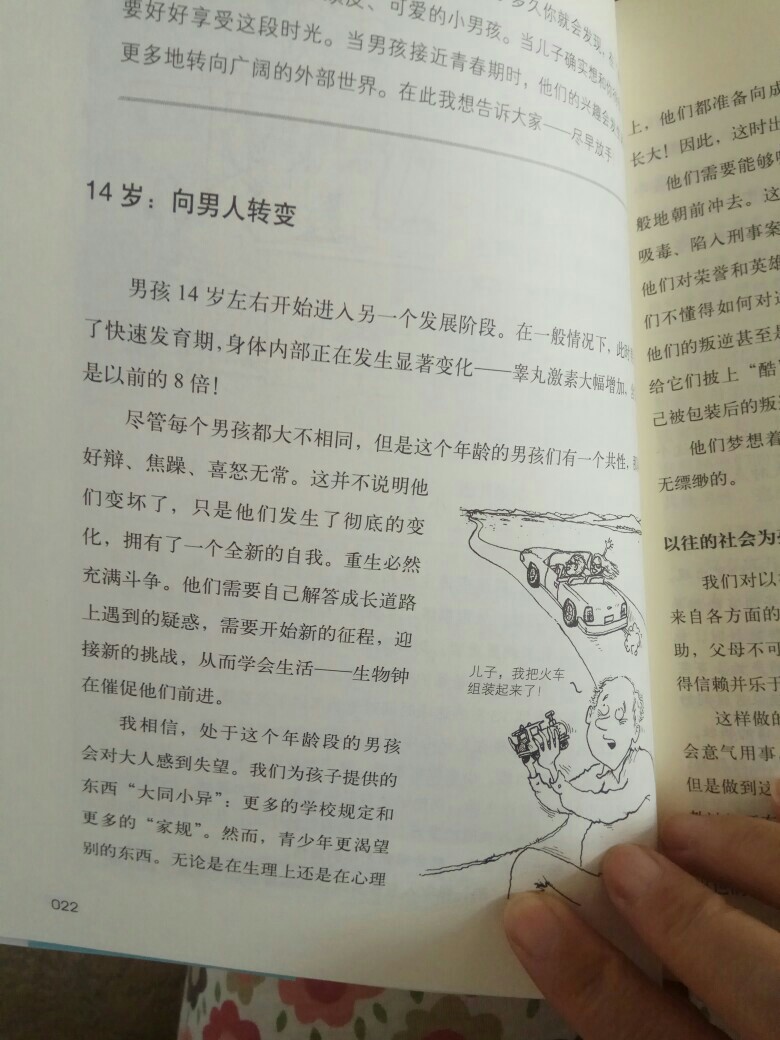 多久你就会发现，
、可爱的小男孩。当儿子确实想和
要好好享受这段时光。当男孩接近青春期时，他们的兴趣会
更多地转向广阔的外部世界。在此我想告诉大家——尽早放手
14 岁：向男人转变
男孩 14 岁左右开始进入另一个发展阶段。在一般情况下，此时
了快速发育期，身体内部正在发生显著变化——睾丸激素大幅增加，
是以前的 8 倍！
尽管每个男孩都大不相同，但是这个年龄的男孩们有一个共性，
好辩、焦躁、喜怒无常。这并不说明他
们变坏了，只是他们发生了彻底的变
化，拥有了一个全新的自我。重生必然
充满斗争。他们需要自己解答成长道路
上遇到的疑惑，需要开始新的征程，迎
接新的挑战，从而学会生活——生物钟
在催促他们前进。
我相信，处于这个年龄段的男孩
会对大人感到失望。我们为孩子提供的
东西“大同小异”：更多的学校规定和
更多的“家规”。然而，青少年更渴望
别的东西。无论是在生理上还是在心理
儿子，我把火车
组装起来了！
022
上，他们都准备向成
长大！因此，这时出
他们需要能够
般地朝前冲去。这
吸毒、陷入刑事案
他们对荣誉和英雄
们不懂得如何对
他们的叛逆甚至是
给它们披上“酷”
己被包装后的叛逆
他们梦想着
无缥缈的。
以往的社会为
我们对以
来自各方面的
助，父母不可
得信赖并乐于
这样做的
会意气用事
但是做到这